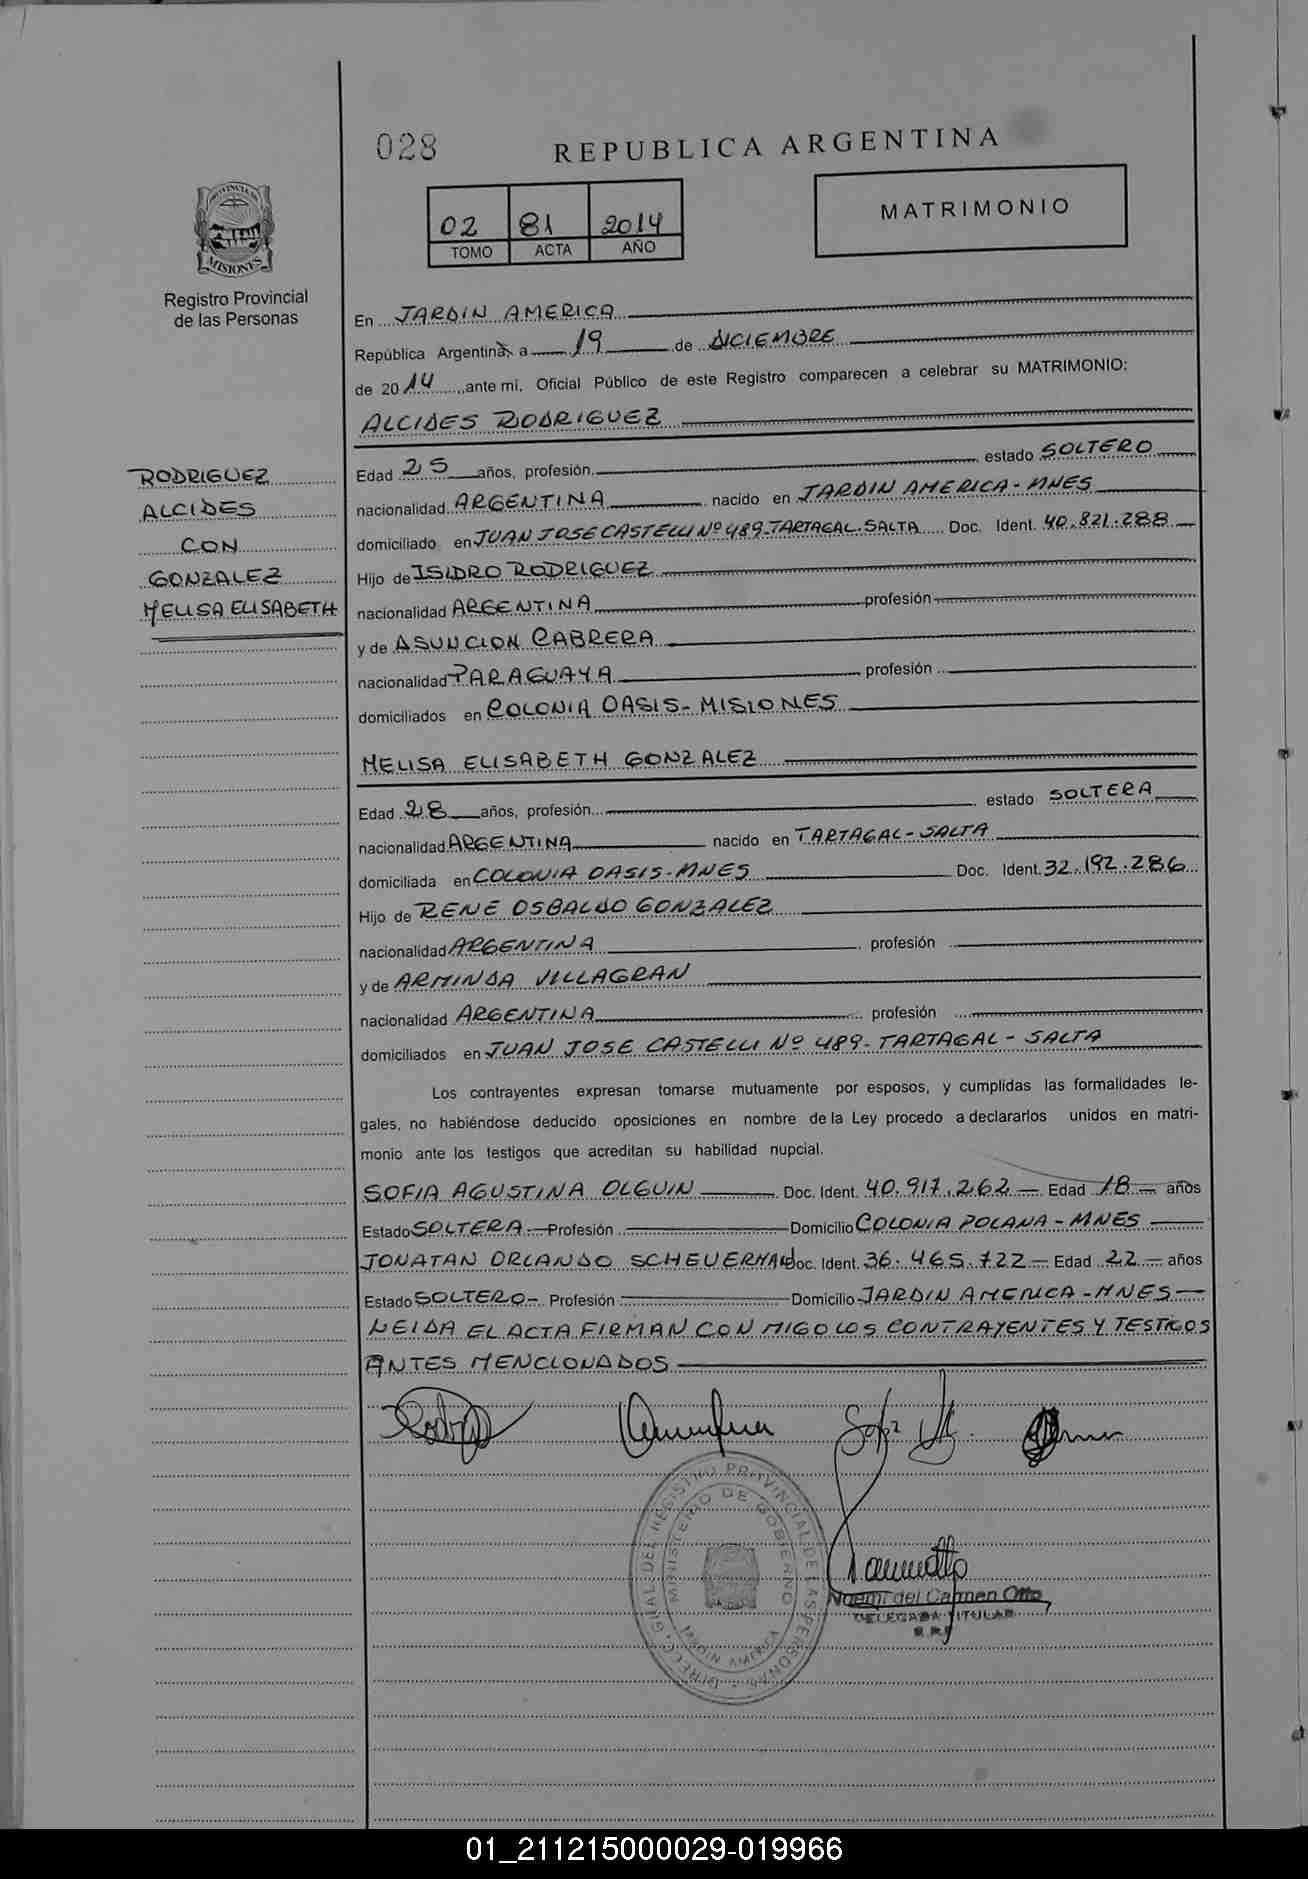 028
REPUBLICA ARGENTINA
02 81 2014
TOMO ACTA AÑO
MATRIMONIO
PROVINCIA DE MISIONES
Registro Provincial
de las Personas
En JARDIN AMERICA
República Argentina, a 19 de DICIEMBRE
de 2014 ante mi. Oficial Público de este Registro comparecen a celebrar su MATRIMONIO:
ALCIDES RODRIGUEZ
RODRIGUEZ
ALCIDES
CON
GONZALEZ
MELISA ELISABETH
Edad 25 años, profesión. estado SOLTERO
nacionalidad ARGENTINA nacido en JARDIN AMERICA - MNES
domiciliado en JUAN JOSE CASTELLI Nº 489-TARTAGAL-SALTA Doc. Ident. 40.821.288
Hijo de ISIDRO RODRIGUEZ
nacionalidad ARGENTINA profesión
y de ASUNCION CABRERA
nacionalidad PARAGUAYA profesión
domiciliados en COLONIA OASIS - MISIONES
MELISA ELISABETH GONZALEZ
Edad 28 años, profesión. estado SOLTERA
nacionalidad ARGENTINA nacido en TARTAGAL - SALTA
domiciliada en COLONIA OASIS - MNES Doc. Ident. 32.192.286
Hijo de RENE OSBALDO GONZALEZ
nacionalidad ARGENTINA profesión
y de ARMINDA VILLAGRAN
nacionalidad ARGENTINA profesión
domiciliados en JUAN JOSE CASTELLI Nº 489 - TARTAGAL - SALTA
Los contrayentes expresan tomarse mutuamente por esposos, y cumplidas las formalidades le-
gales, no habiéndose deducido oposiciones en nombre de la Ley procedo a declararlos unidos en matri-
monio ante los testigos que acreditan su habilidad nupcial.
SOFIA AGUSTINA OLGUIN Doc. Ident. 40.917.262 Edad 18 años
Estado SOLTERA Profesión Domicilio COLONIA POLANA - MNES
JONATAN ORLANDO SCHEUERMAN Doc. Ident. 36.465.722 Edad 22 años
Estado SOLTERO Profesión Domicilio JARDIN AMERICA - MNES
LEIDA EL ACTA FIRMAN CONMIGO LOS CONTRAYENTES Y TESTIGOS
ANTES MENCIONADOS
DIRECC. GRAL. DEL REGISTRO PROVINCIAL DE LAS PERSONAS
MINISTERIO DE GOBIERNO
JARDIN AMERICA
Noemi del Carmen Otto
DELEGADA TITULAR
R.P.P.
01_211215000029-019966